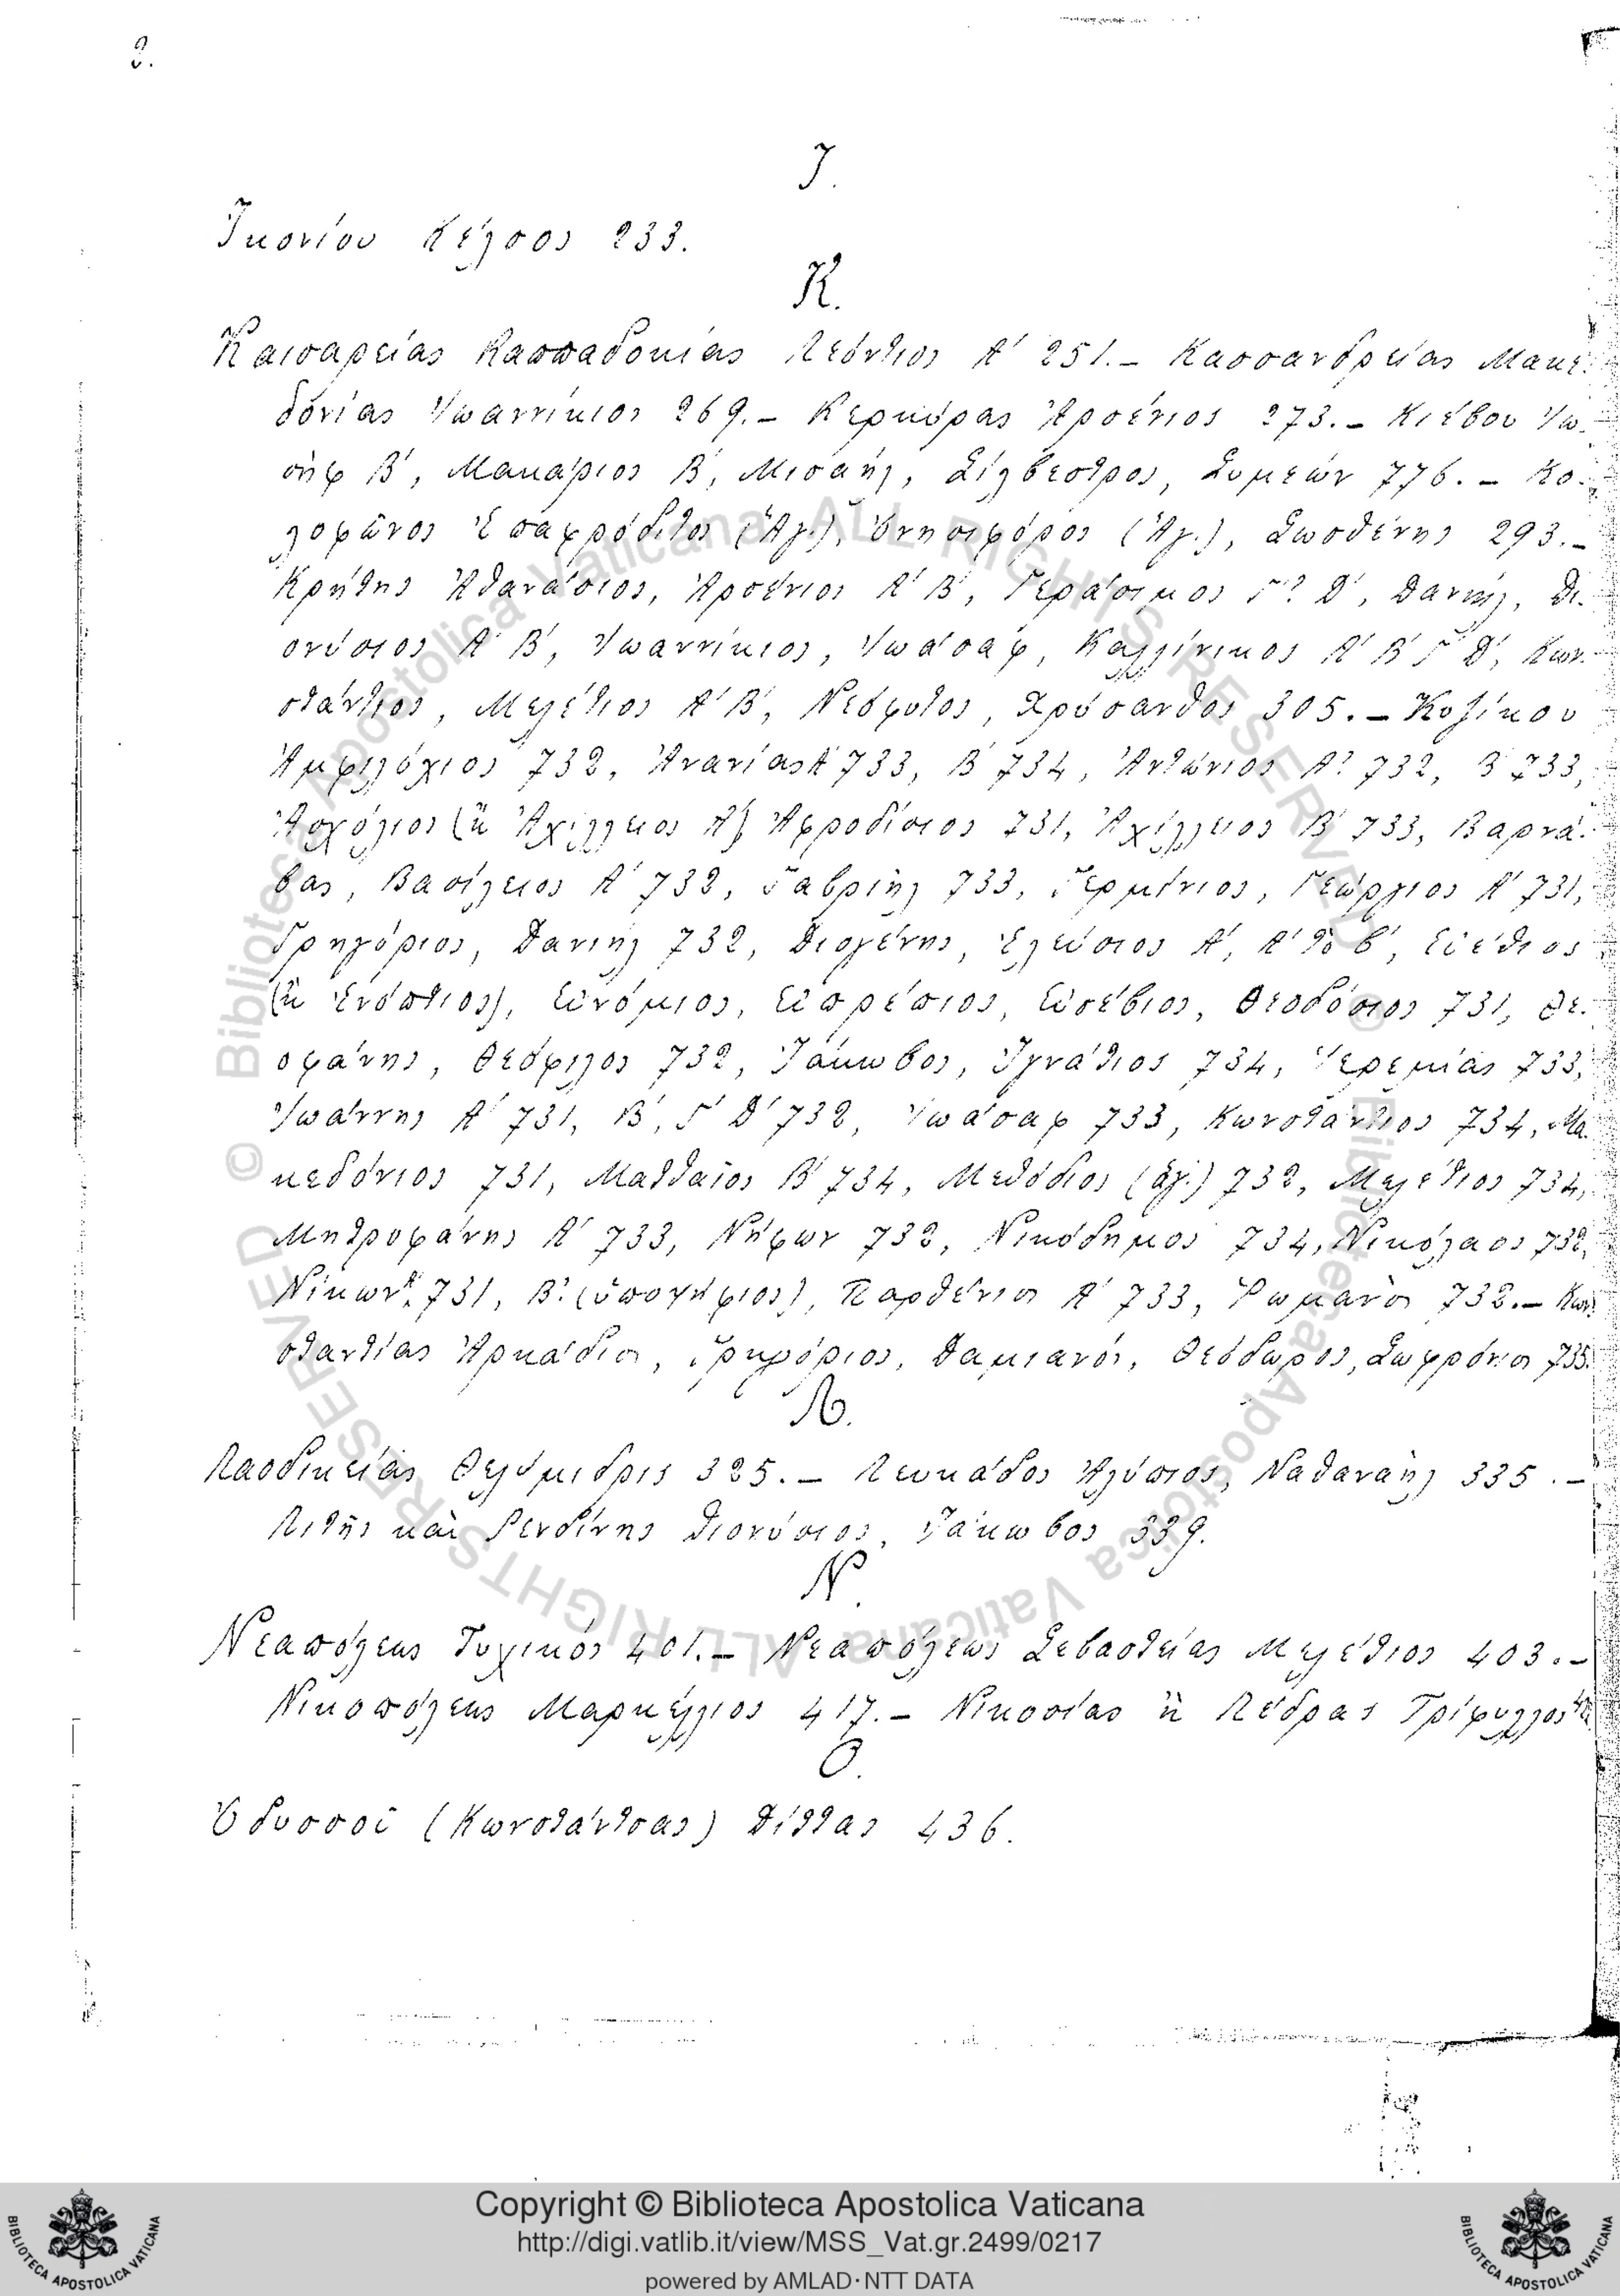 2.
Ι.
Ἰκονίου Κέλσος 233.
Κ.
Καισαρείας Καππαδοκίας Λεόντιος Α΄ 251.– Κασσανδρείας Μακε-
δόνίας Ἰωαννίκιος 269.– Κερκύρας Ἀρσένιος 273.– Κιέβου Ἰω-
σὴφ Β΄, Μακάριος Β΄, Μισαήλ, Σίλβεστρος, Συμεών 776.– Κο-
λοφῶνος Ἐπαφρόδιτος (Ἅγ.), Ὀνησιφόρος (Ἅγ.), Σωσθένης 293.–
Κρήτης Ἀθανάσιος, Ἀρσένιος Α΄ Β΄, Γεράσιμος Γ΄ Δ΄, Δανιήλ, Δι-
ονύσιος Α΄ Β΄, Ἰωαννίκιος, Ἰωάσαφ, Καλλίνικος Α΄ Β΄ Γ΄ Δ΄, Κων-
στάντιος, Μελέτιος Α΄ Β΄, Νεόφυτος, Χρύσανθος 305.– Κυζίκου
Ἀμφιλόχιος 732, Ἀνανίας Α΄ 733, Β΄ 734, Ἀντώνιος Α΄ 732, Β΄ 733,
Ἀσχόλιος (ἢ Ἀχίλλειος Α΄) Ἀφροδίσιος 731, Ἀχίλλειος Β΄ 733, Βαρνά-
βας, Βασίλειος Α΄ 732, Γαβριὴλ 733, Γερμίνιος, Γεώργιος Α΄ 731,
Γρηγόριος, Δανιὴλ 732, Διογένης, Ἐλεύσιος Α΄, Α΄ τὸ β΄, Εὐέθιος
(ἢ Ἐνόπτιος), Εὐνόμιος, Εὐπρέπιος, Εὐσέβιος, Θεοδόσιος 731, Θε-
οφάνης, Θεόφιλος 732, Ἰάκωβος, Ἰγνάτιος 734, Ἱερεμίας 733,
Ἰωάννης Α΄ 731, Β΄, Γ΄ Δ΄ 732, Ἰωάσαφ 733, Κωνστάντιος 734, Μα-
κεδόνιος 731, Ματθαῖος Β΄ 734, Μεθόδιος (ἅγ.) 732, Μελέτιος 734,
Μητροφάνης Α΄ 733, Νήφων 732, Νικόδημος 734, Νικόλαος 732,
Νίκων Α΄ 731, Β΄ (ὑποψήφιος), Παρθένιος Α΄ 733, Ῥωμανὸς 732.– Κων-
σταντίας Ἀρκάδιος, Γρηγόριος, Δαμιανός, Θεόδωρος, Σωφρόνιος 735.
Λ.
Λαοδικείας Θελύμιδρις 325.– Λευκάδος Ἀλύπιος, Ναθαναὴλ 335.–
Λιτῆς καὶ Ρενδίνης Διονύσιος, Ἰάκωβος 339.
Ν.
Νεαπόλεως Τυχικός 401.– Νεαπόλεως Σεβαστείας Μελέτιος 403.–
Νικοπόλεως Μαρκέλλιος 417.– Νικοσίας ἢ Λέδρας Τρίφυλλος
Ο.
Ὀδυσσοῦ (Κωνστάντσας) Δίττας 436.
© Biblioteca Apostolica Vaticana ALL RIGHTS RESERVED
© Biblioteca Apostolica Vaticana ALL RIGHTS RESERVED
Copyright © Biblioteca Apostolica Vaticana
http://digi.vatlib.it/view/MSS_Vat.gr.2499/0217
powered by AMLAD·NTT DATA
BIBLIOTECA APOSTOLICA VATICANA
BIBLIOTECA APOSTOLICA VATICANA